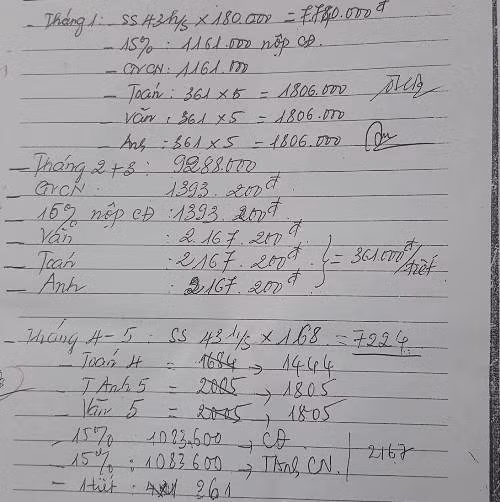 Tháng 1: SS 43 h/s × 180.000 = 7740.000đ
- 15% : 1161.000 nộp CĐ.
- GVCN : 1161.000
- Toán : 361 × 5 = 1806.000
- Văn : 361 × 5 = 1806.000
- Anh : 361 × 5 = 1806.000
- Tháng 2+3 : 9288.000
- GVCN : 1393.200đ
- 15% nộp CĐ : 1393.200đ
- Văn : 2.167.200đ
- Toán : 2.167.200đ } = 361.000đ/tiết
- Anh : 2.167.200đ
- Tháng 4-5 : SS 43 h/s × 168 = 7224
- Toán 4 = 1684 → 1444
- T Anh 5 = 2005 → 1805
- Văn 5 = 2005 → 1805
- 15% 1083.600 → CĐ
- 15% : 1083600 → CN. 2167
- 1 tiết : 361